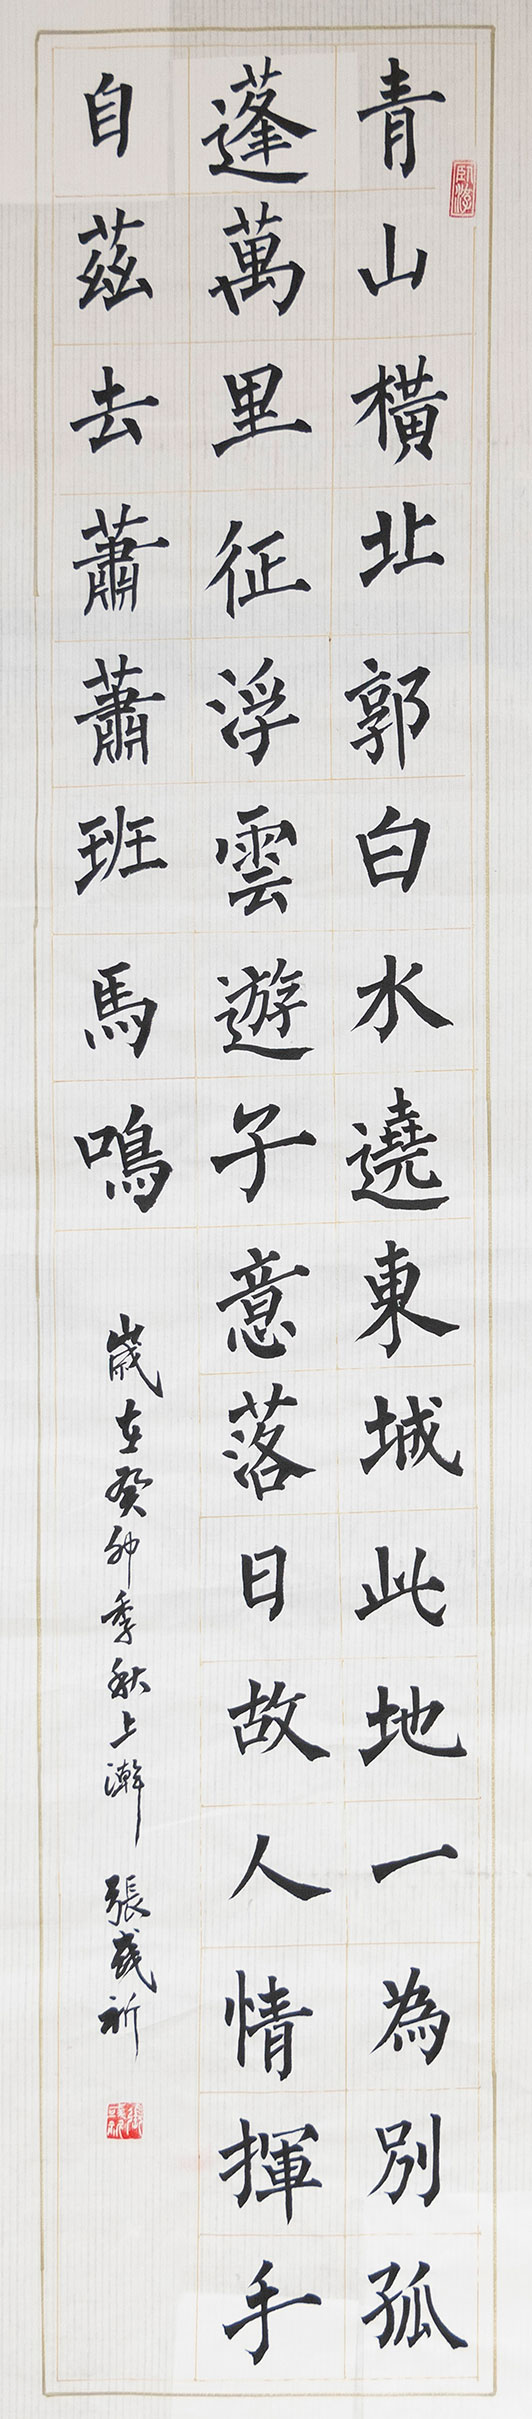 青山橫北郭白水遶東城此地一為別孤
蓬萬里征浮雲遊子意落日故人情揮手
自茲去蕭蕭班馬鳴
歲在癸卯季秋上澣 張彧祈
臥游